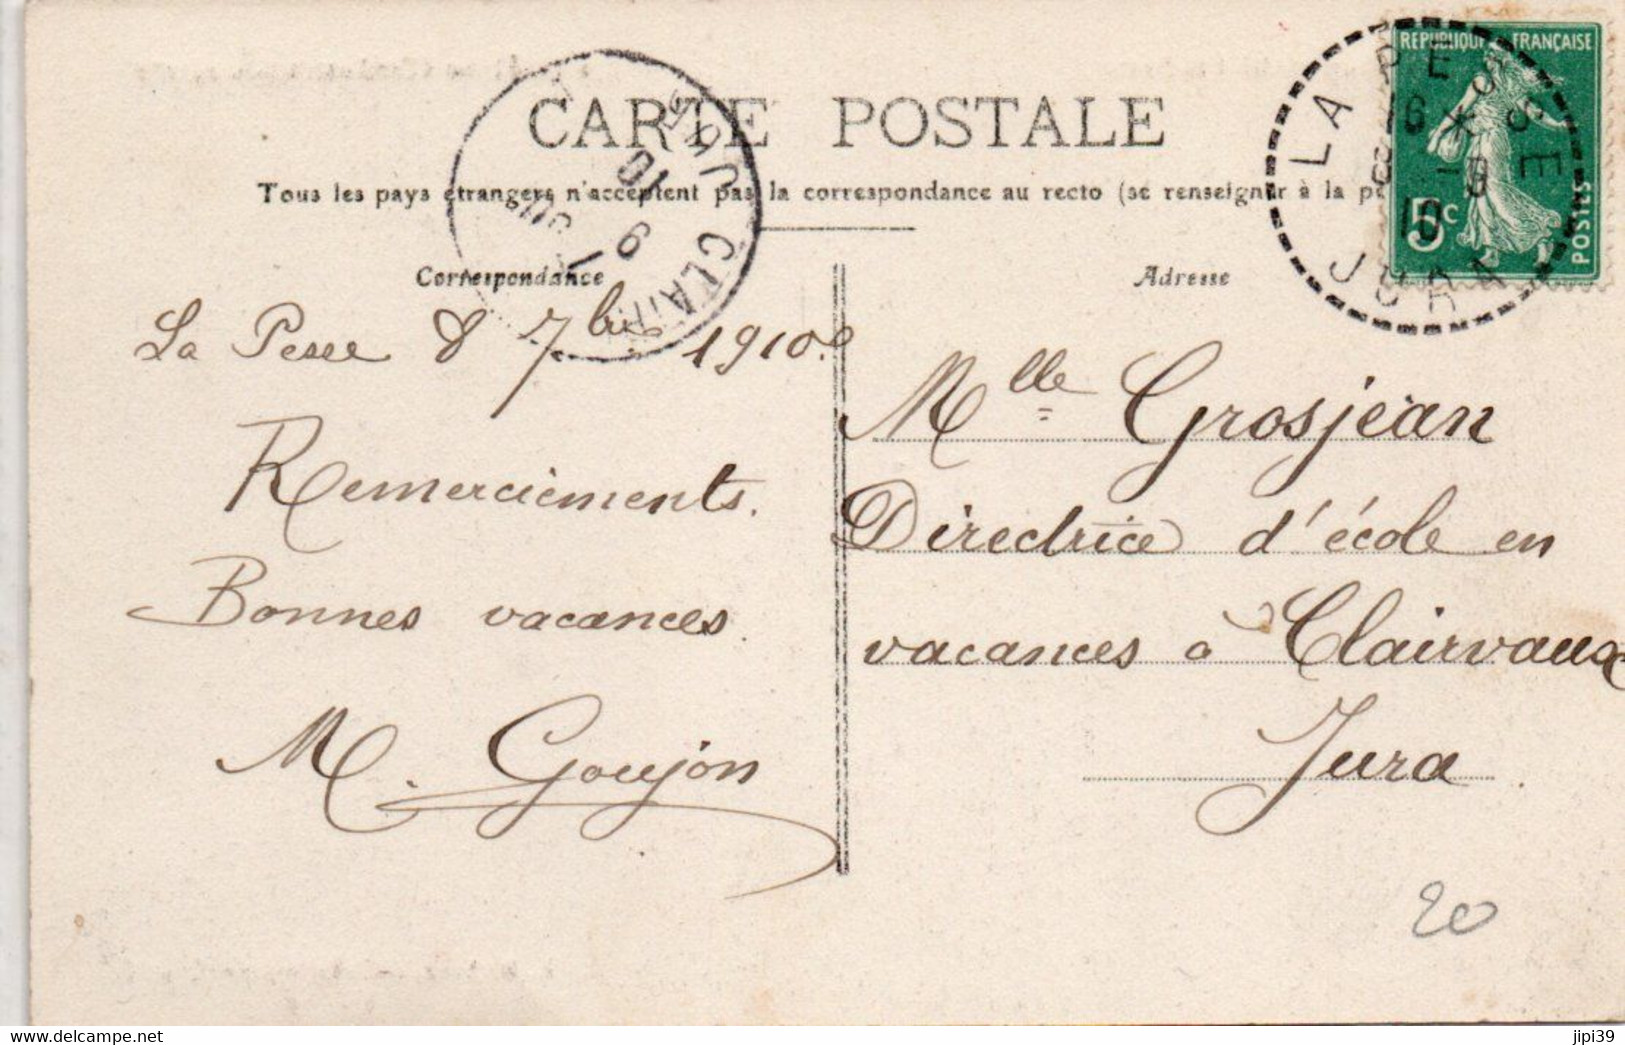 CARTE POSTALE
Tous les pays étrangers n'acceptent pas la correspondance au recto (se renseigner à la p
Correspondance
La Pesse 8 7bre 1910.
Remerciements.
Bonnes vacances.
M. Goujon
Adresse
Mlle Grosjean
Directrice d'école en
vacances à Clairvaux
Jura
20
REPUBLIQUE FRANÇAISE
5c
POSTES
LA PESSE
16 *
8 -9
10
JURA
CLAIRV
JURA
9
10
www.delcampe.net
jipi39